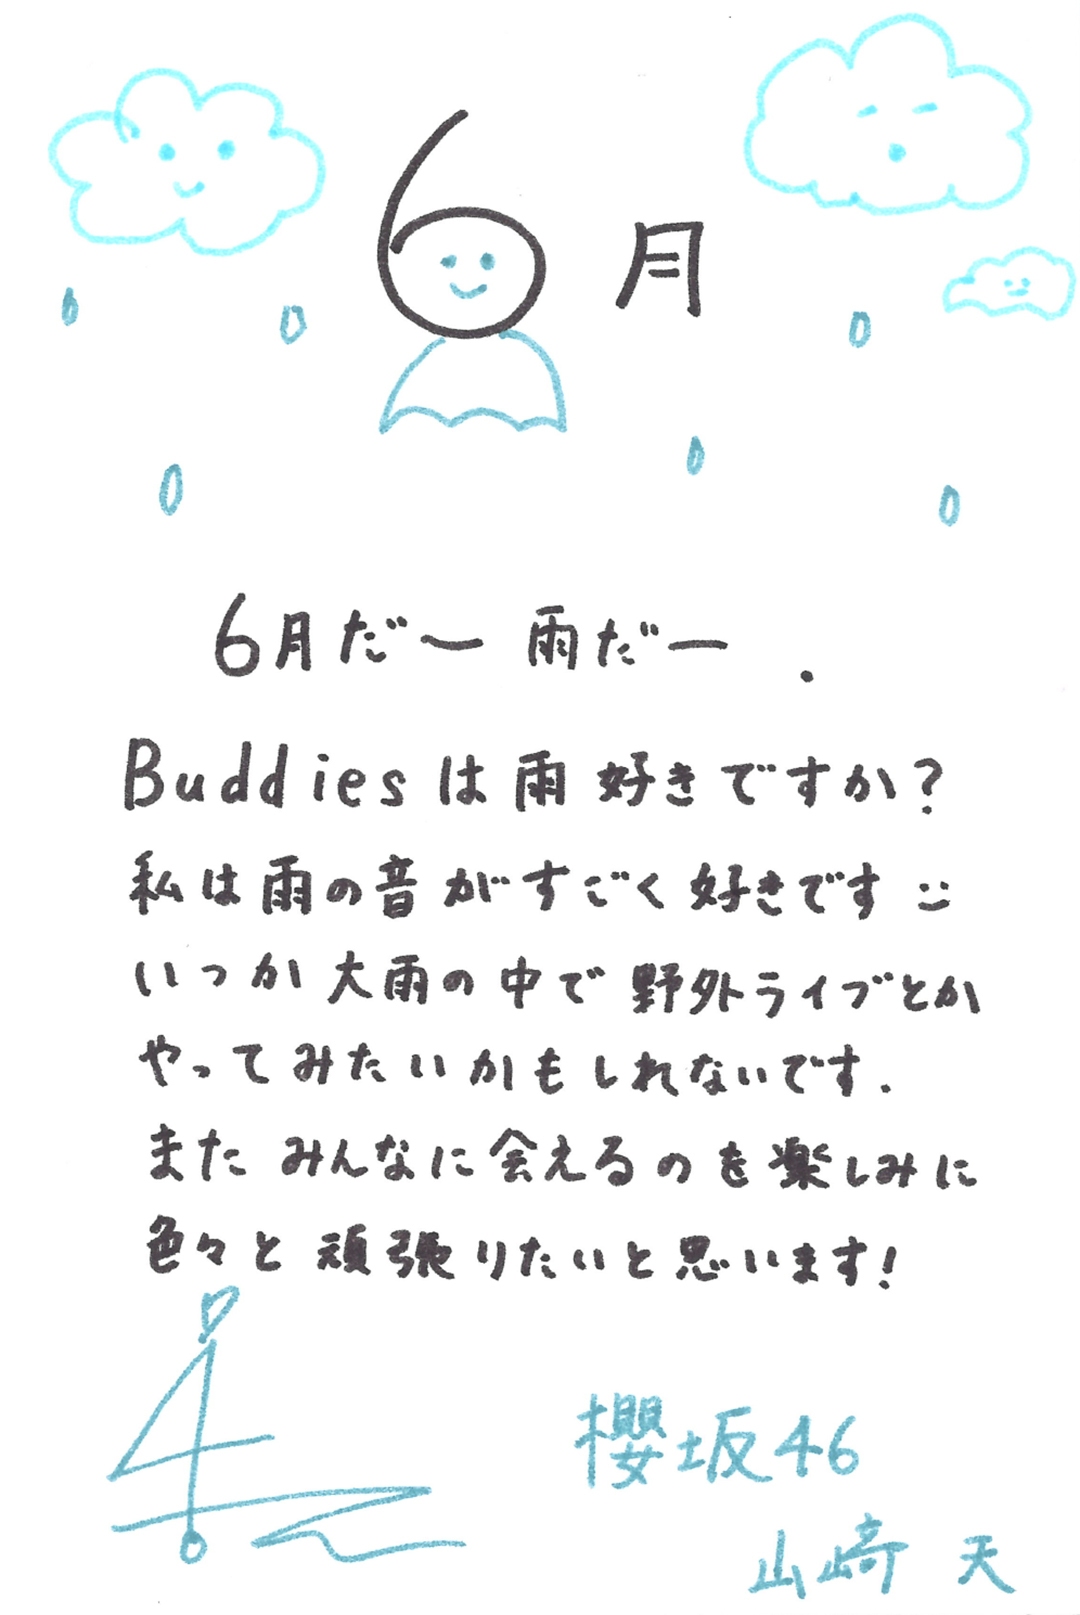 6月
6月だー 雨だー .
Buddiesは雨好きですか?
私は雨の音がすごく好きです :)
いつか大雨の中で野外ライブとか
やってみたいかもしれないです.
またみんなに会えるのを楽しみに
色々と頑張りたいと思います!
櫻坂46
山﨑 天